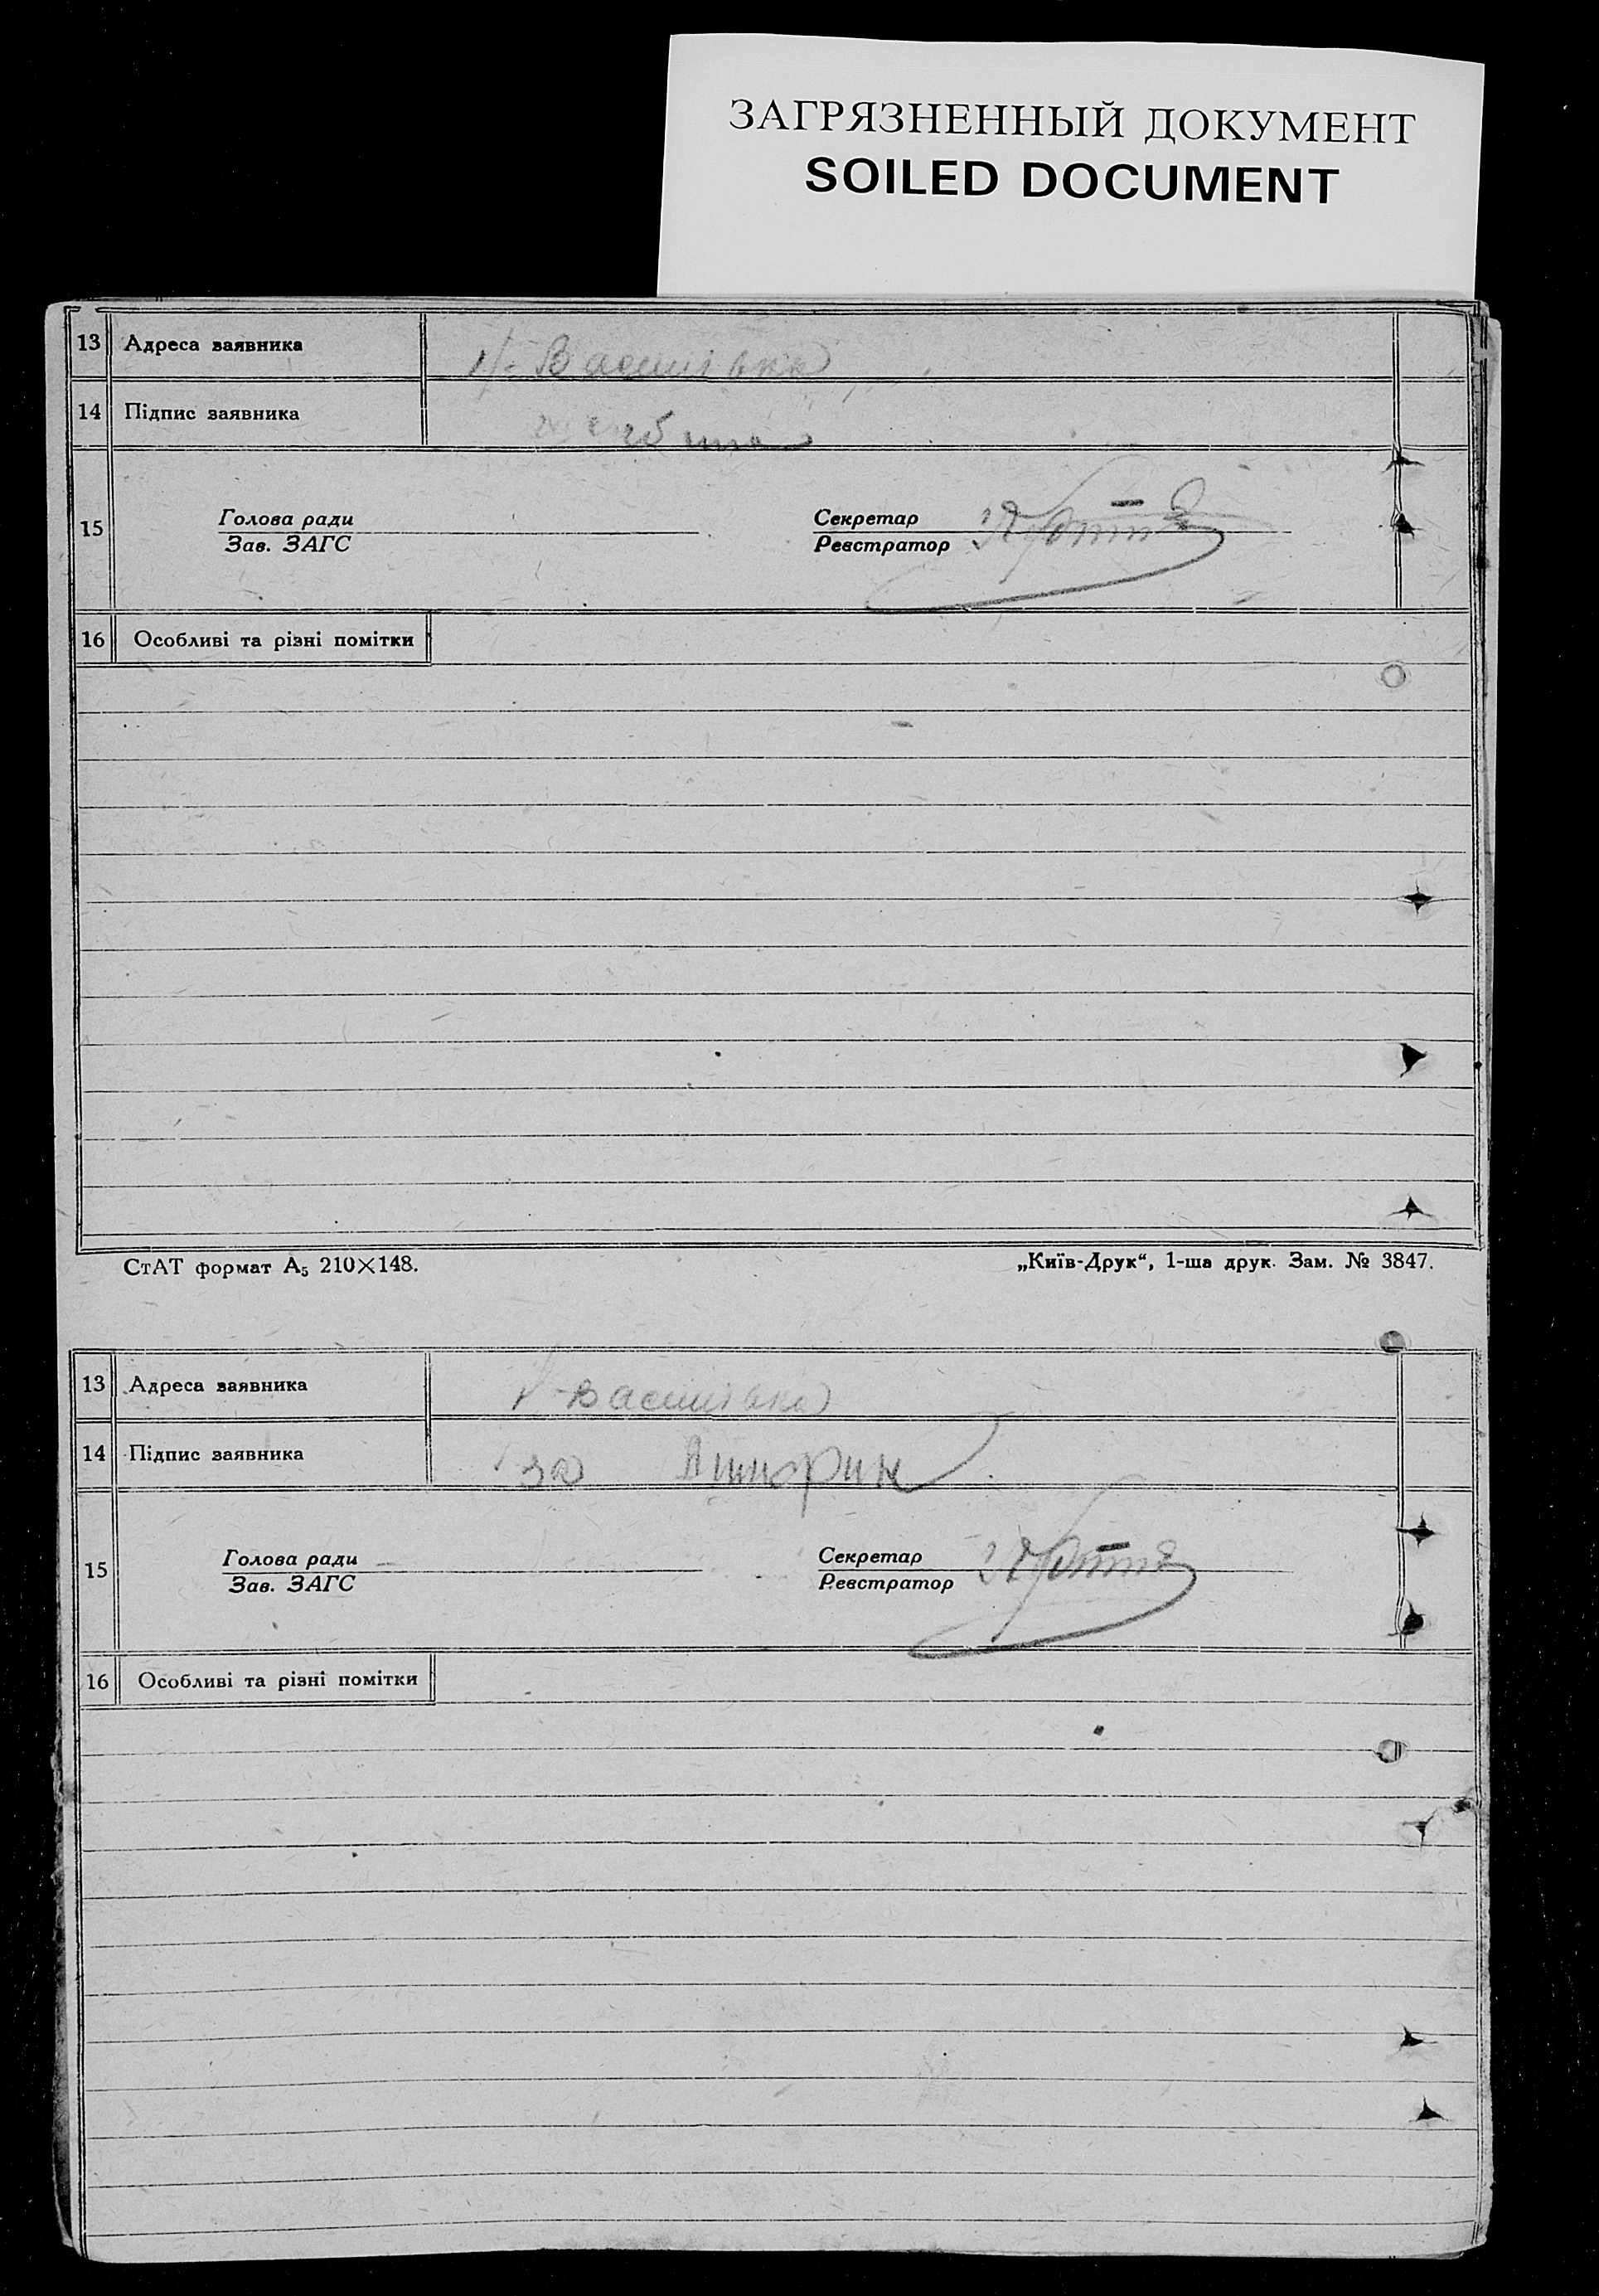 ЗАГРЯЗНЕННЫЙ ДОКУМЕНТ
SOILED DOCUMENT
13 Адреса заявника Василівка
14 Підпис заявника
15 Голова ради Секретар
Зав. ЗАГС Реєстратор
16 Особливі та різні помітки
СтАТ формат А₅ 210×148. „Київ-Друк“, 1-ша друк. Зам. № 3847.
13 Адреса заявника Василівка
14 Підпис заявника за
15 Голова ради Секретар
Зав. ЗАГС Реєстратор
16 Особливі та різні помітки